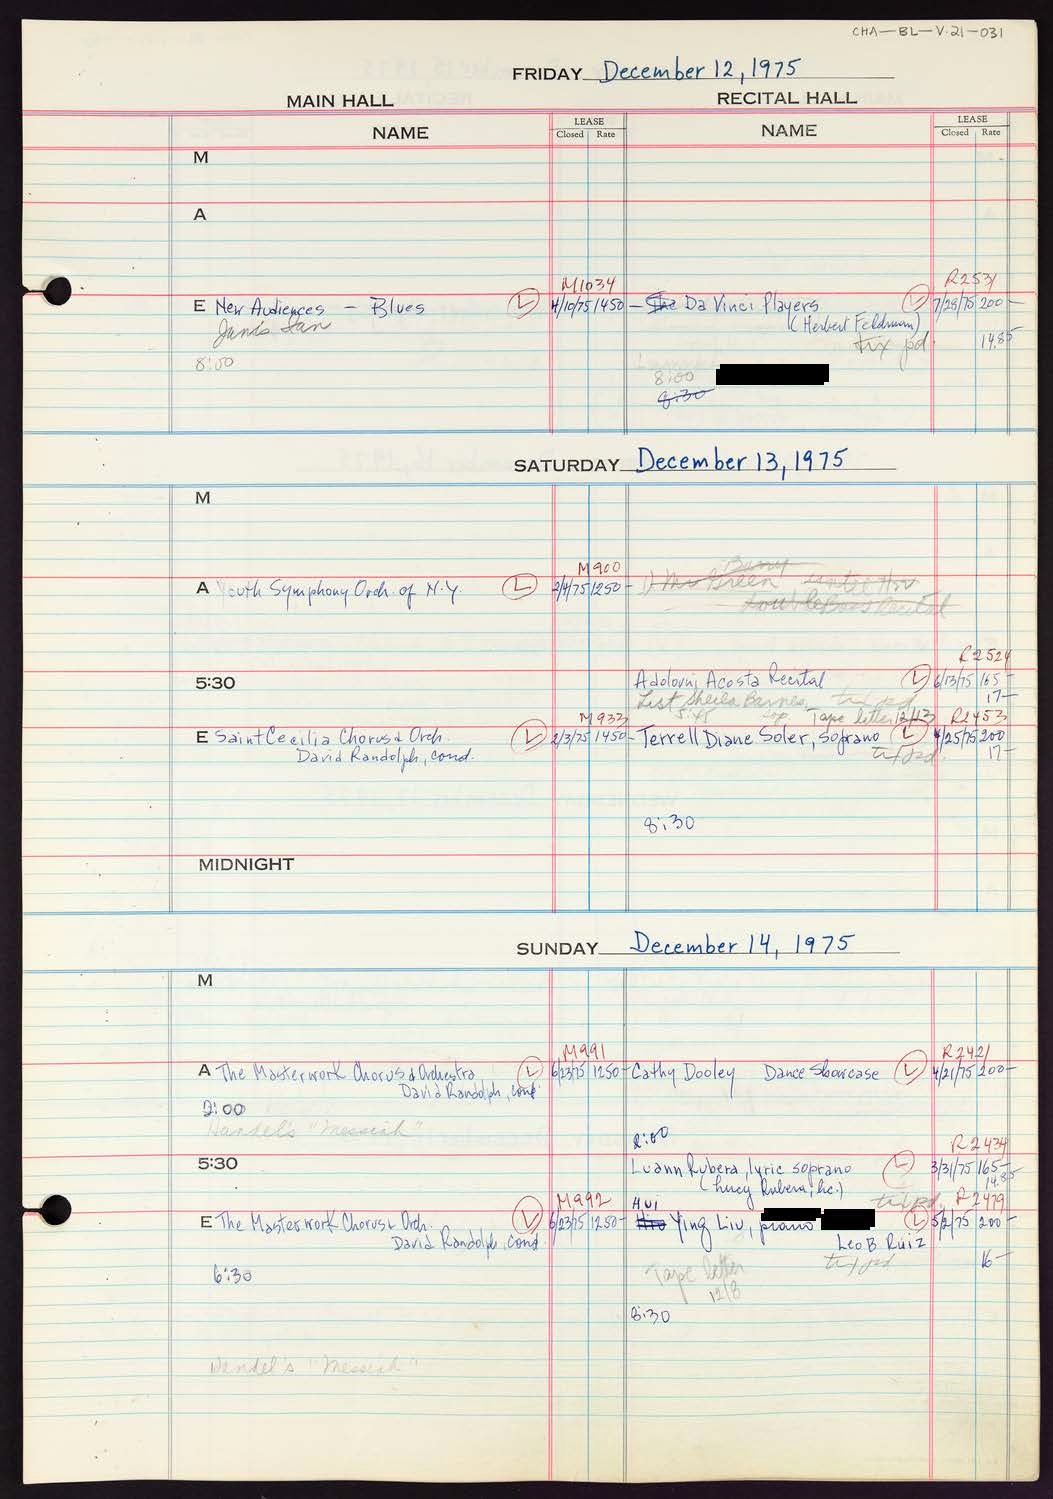 CHA-BL-V.21-031
FRIDAY December 12, 1975
MAIN HALL RECITAL HALL
NAME LEASE Closed Rate NAME LEASE Closed Rate
M
A
M1034 R2531
E New Audiences - Blues L 4/10/75 1450- The Da Vinci Players L 7/29/75 200-
Janis Ian (Herbert Feldman)
tix pd. 14.85
8:00
8:00
8:30
SATURDAY December 13, 1975
M
Barry
M900
A Youth Symphony Orch. of N.Y. L 2/4/75 1250- Green
Double Bass Recital
R2524
5:30 Adolovni Acosta Recital L 6/13/75 165-
List Sheila Barnes tix pd 17-
5:45 Tape letter 12/13
M933 R2453
E Saint Cecilia Chorus & Orch. L 2/3/75 1450- Terrell Diane Soler, Soprano L 4/25/75 200
David Randolph, cond. tix pd. 17-
8:30
MIDNIGHT
SUNDAY December 14, 1975
M
M991 R2421
A The Masterwork Chorus & Orchestra L 6/23/75 1250- Cathy Dooley Dance Showcase L 4/21/75 200-
David Randolph, cond.
2:00
Handel's "Messiah"
2:00
R2434
5:30 Luann Rubera, lyric soprano L 3/31/75 165-
14.85
(Lucy Rubera, Inc.)
tix pd.
M992 Hui R2479
E The Masterwork Chorus & Orch. L 6/23/75 1250- Ying Liu, piano L 5/2/75 200-
David Randolph, cond. Leo B Ruiz
tix pd 16-
6:30 Tape letter
12/8
8:30
Handel's "Messiah"